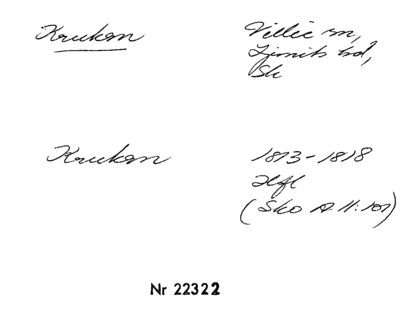 Krukan
Villie sn,
Ljunits hd,
Sk
Krukan
1813-1818
Hfl
(Sko A II:107)
Nr 22322